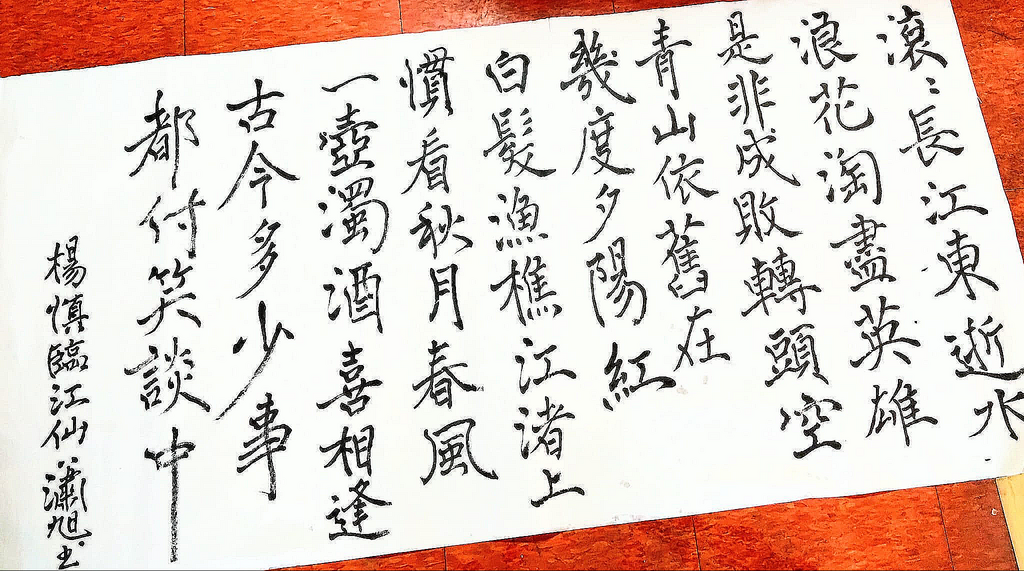 滾〻長江東逝水
浪花淘盡英雄
是非成敗轉頭空
青山依舊在
幾度夕陽紅
白髮漁樵江渚上
慣看秋月春風
一壺濁酒喜相逢
古今多少事
都付笑談中
楊慎臨江仙 瀟旭书